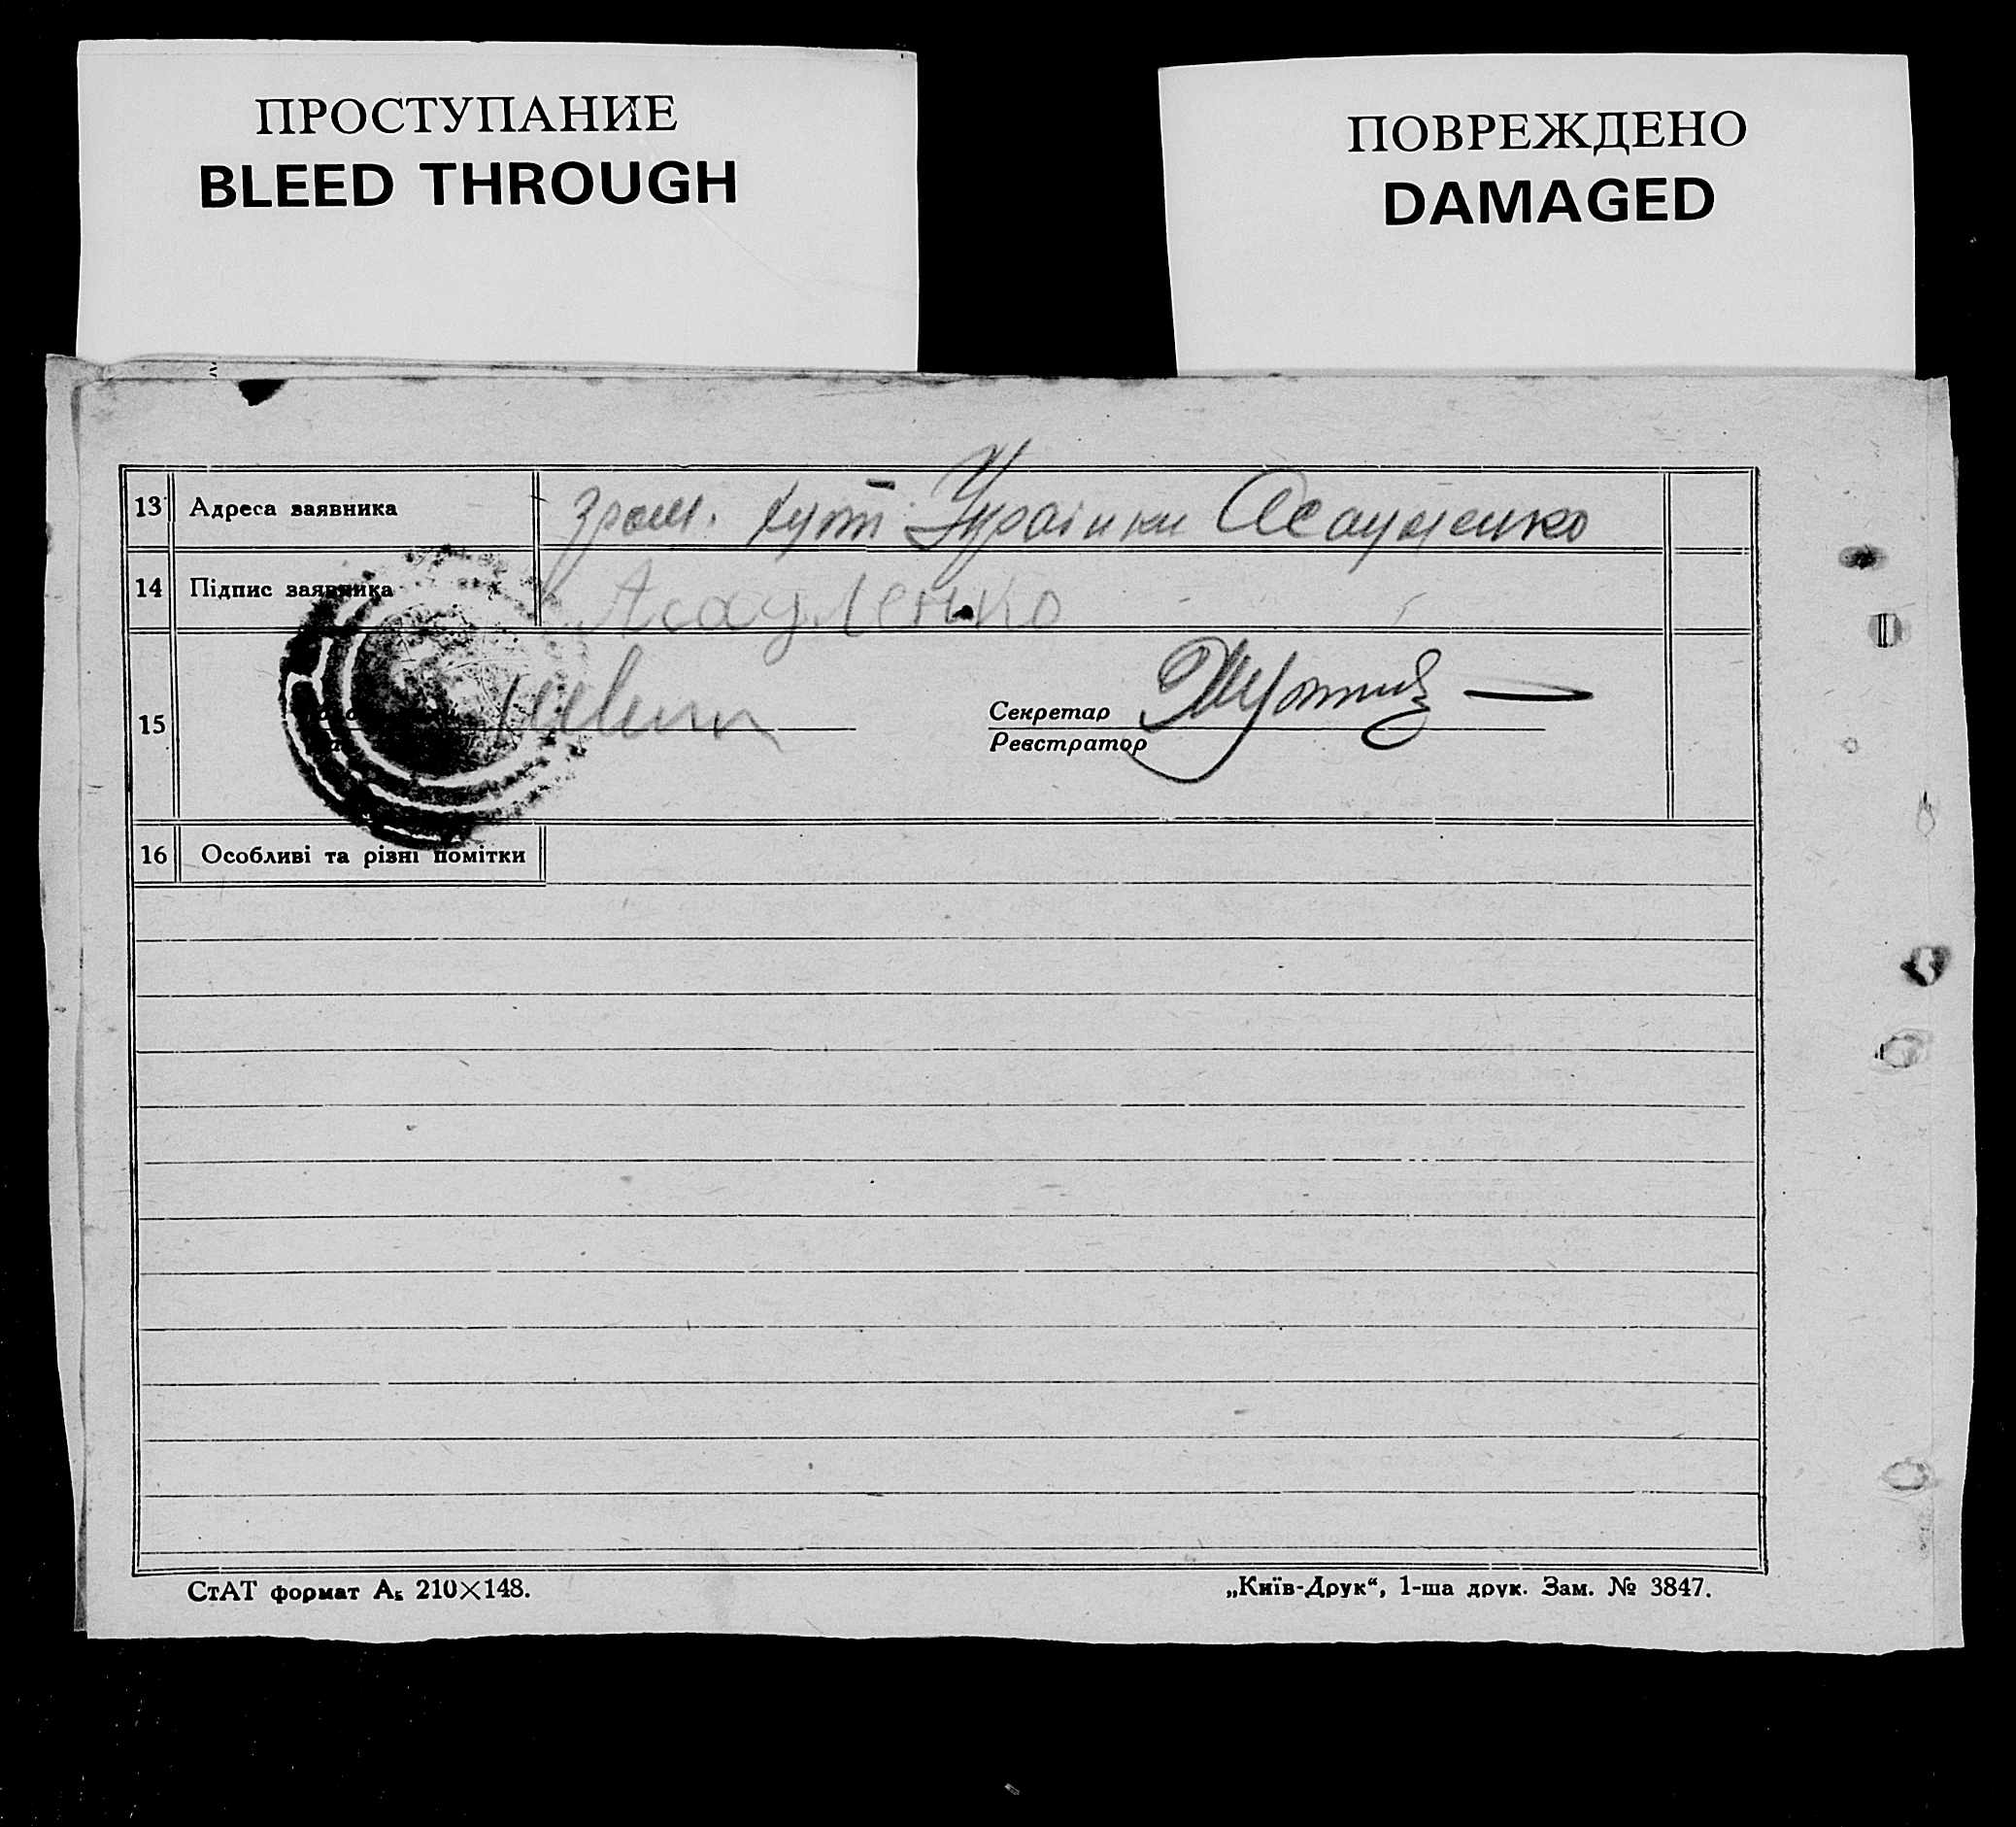 ПРОСТУПАНИЕ
BLEED THROUGH
ПОВРЕЖДЕНО
DAMAGED
13 Адреса заявника гром. хут. Українки Асауленко
14 Підпис заявника Асауленко
15
Секретар
Реєстратор
16 Особливі та різні помітки
СтАТ формат А5 210×148.
„Київ-Друк“, 1-ша друк. Зам. № 3847.